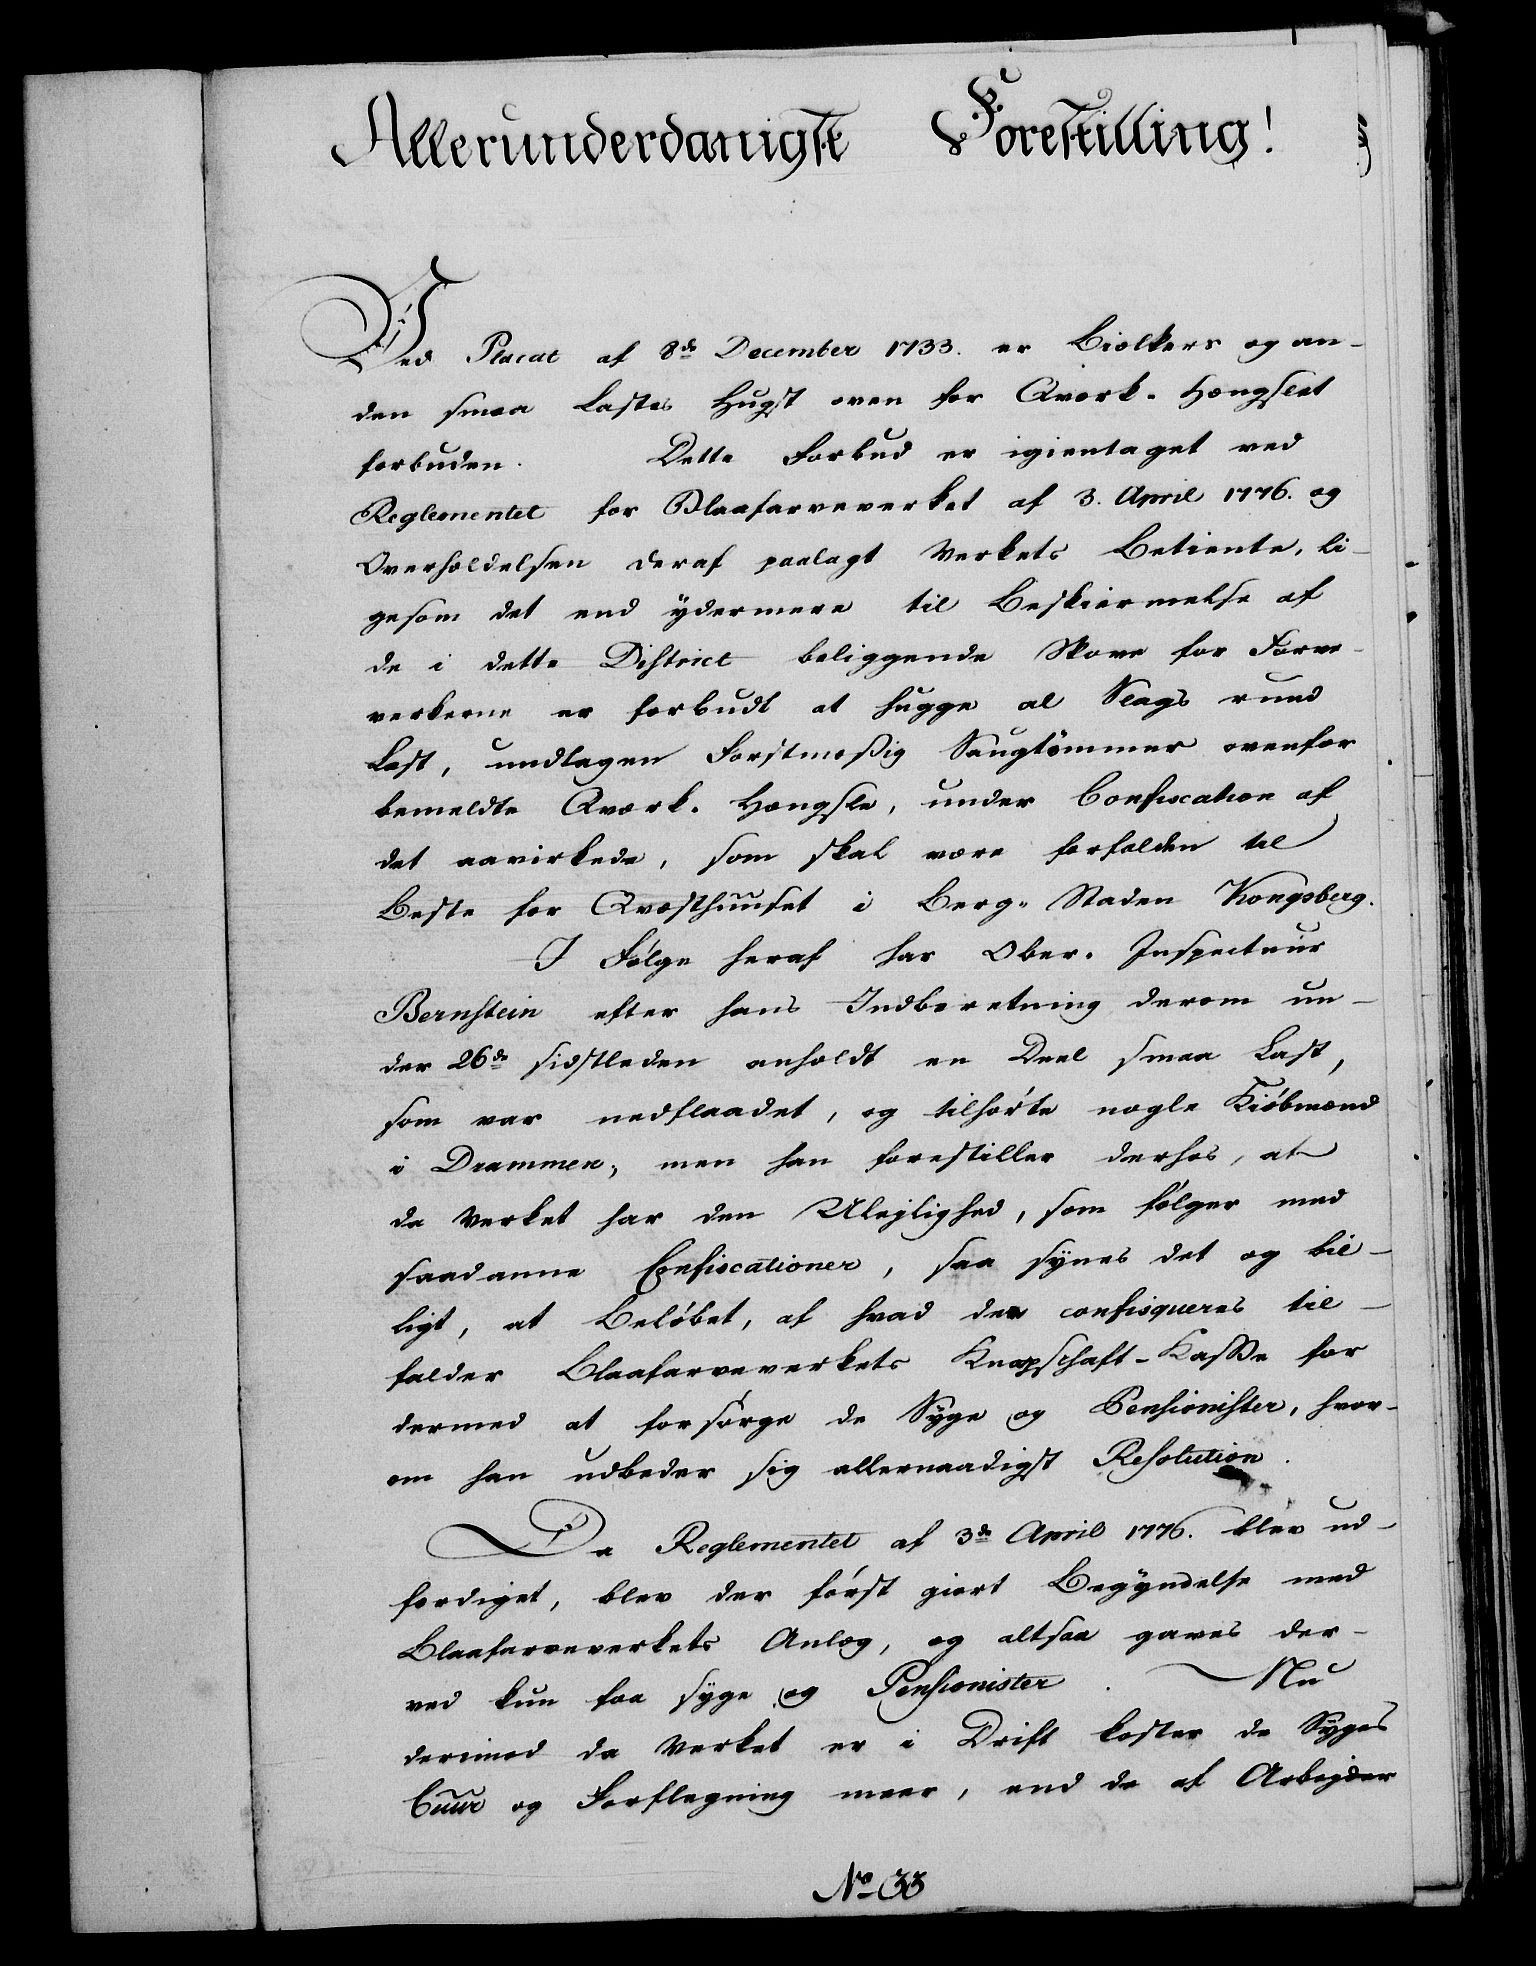 Allerunderdanigst Forestilling!
Ved Placat af 8de December 1733. er Bielkers og an-
den smaa Lastes Hugst oven for Qværk-Hængslet
forbuden. Dette Forbud er igientaget ved
Reglementet for Blaafarveverket af 3. April 1776. og
Overholdelsen deraf paalagt Verkets Betiente, li-
gesom det end ÿdermere til Beskiermelse af
de i dette District beliggende Skove for Farve-
verkerne er forbudt at hugge al Slags rund
Last, undtagen Forstmæssig Saugtømmer ovenfor
bemeldte Qværk-Hængsle, under Confiscation af
det aavirkede, som skal være forfalden til
Beste for Qvæsthuuset i Berg-Staden Kongsberg.
I Følge heraf har Ober-Inspecteur
Bernstein efter hans Indberetning derom un-
der 26de sidstleden anholdt en Deel smaa Last,
som var nedflaadet, og tilhørte nogle Kiøbmænd
i Drammen, men han forestiller derhos, at
da Verket har den Ulejlighed, som følger med
saadanne Confiscationer, saa sÿnes det og bil-
ligt, at Beløbet, af hvad der confisqueres til-
falder Blaafarveverkets Knapschaft-Kasse for
dermed at forsørge de Sÿge og Pensionister, hvor-
om han udbeder sig allernaadigst Resolution.
Da Reglementet af 3de April 1776. blev ud-
færdiget, blev der først giort Begÿndelse med
Blaafarveverkets Anlæg, og altsaa gaves der-
ved kun faa sÿge og Pensionister. Nu
derimod da Verket er i Drift koster de Sÿges
Cuur og Forflegning meer, end de af Arbejder
No 33